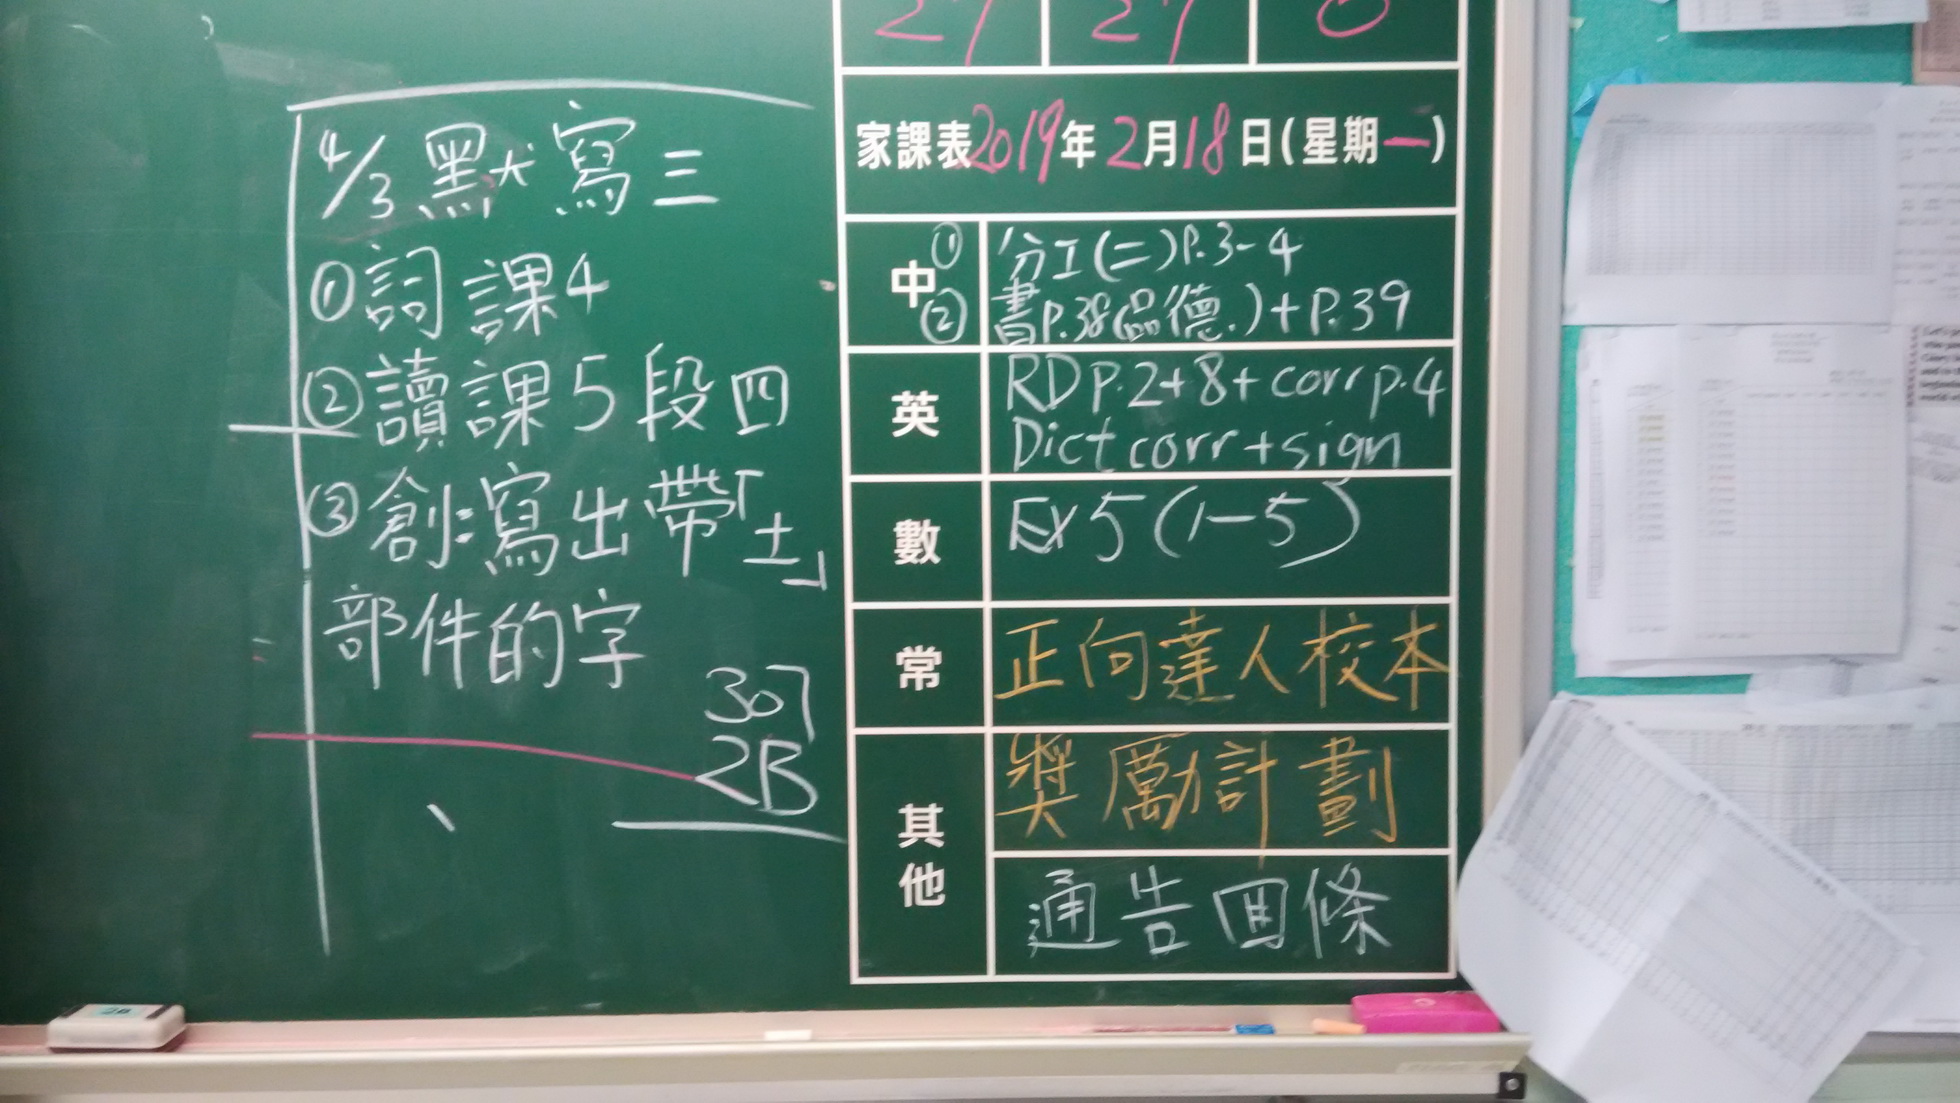 4/3 默寫三
①詞 課4
②讀課5段四
③創:寫出帶「土」
部件的字
307
2B
27 27 0
家課表2019年2月18日(星期一)
中
① 分工(二)P.3-4
② 書P.38(品德.)+P.39
英
RD p.2+8+corr p.4
Dict corr+sign
數
Ex 5(1-5)
常
正向達人校本
其他
獎勵計劃
通告回條